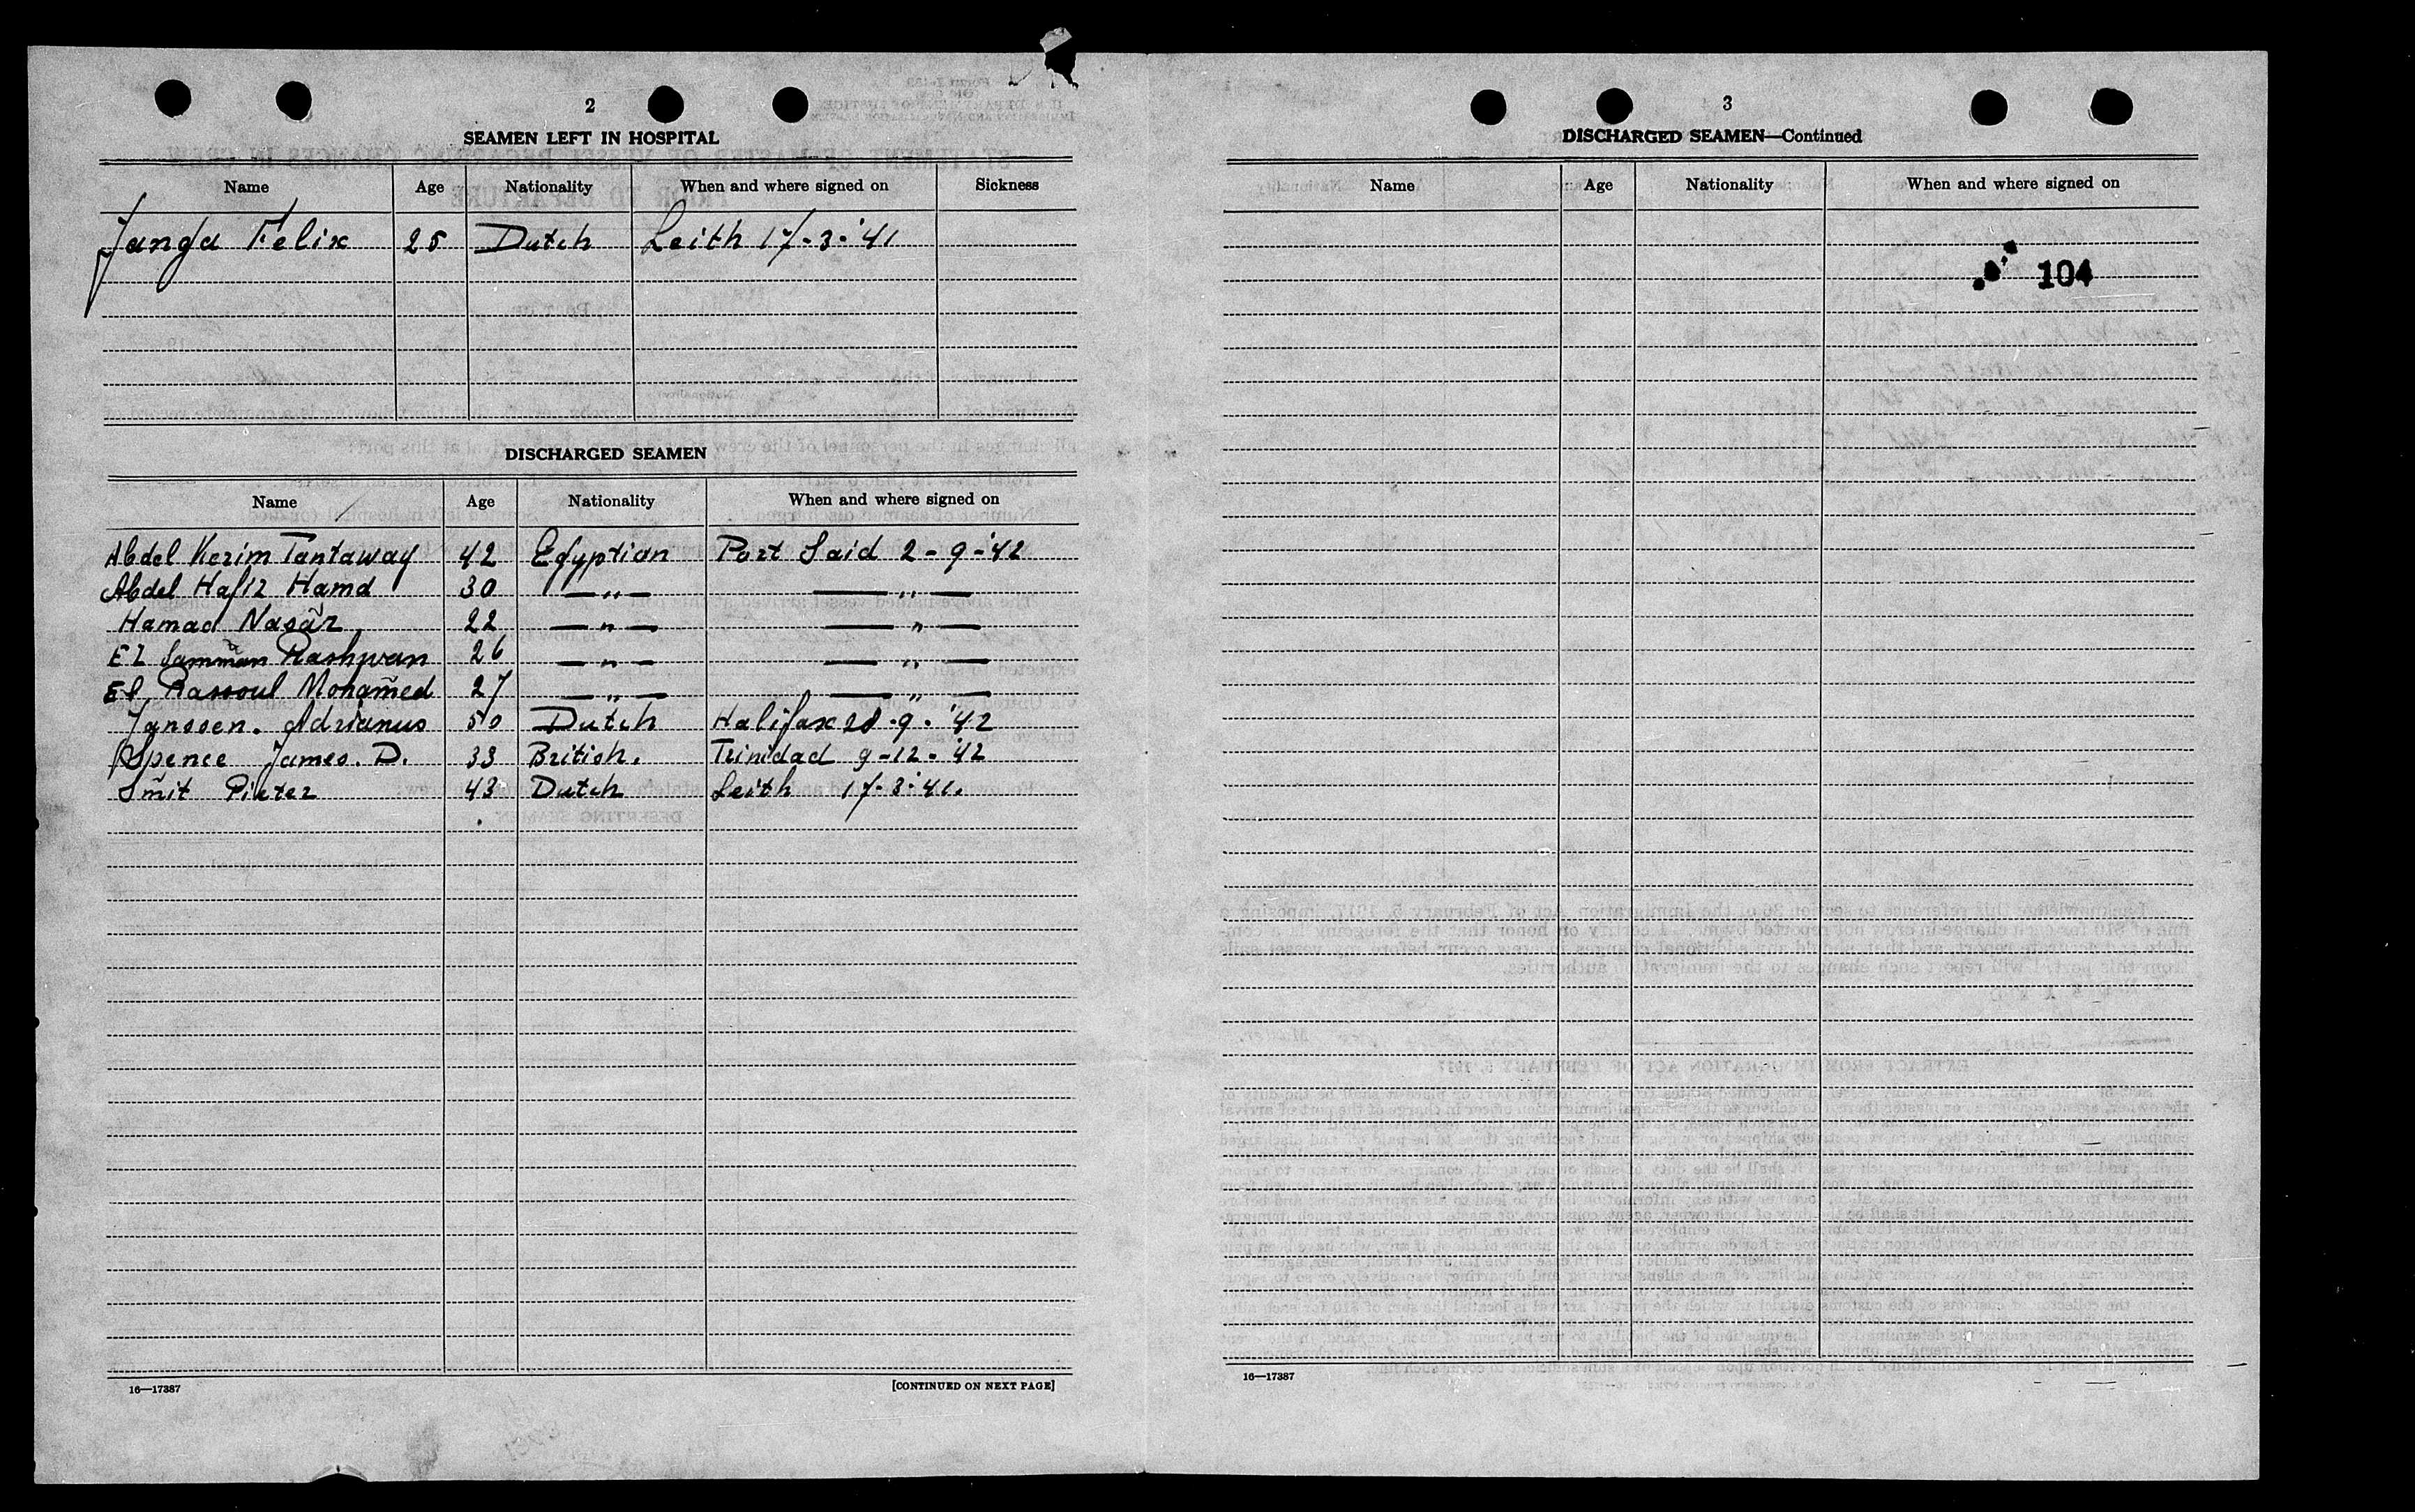 2
SEAMEN LEFT IN HOSPITAL
Name Age Nationality When and where signed on Sickness
Janga Felix 25 Dutch Leith 17-3-'41
DISCHARGED SEAMEN
Name Age Nationality When and where signed on
Abdel Kerim Tantaway 42 Egyptian Port Said 2-9-'42
Abdel Hafiz Hamd 30 —„— —„—
Hamad Nasar 22 —„— —„—
El Samman Rashwan 26 —„— —„—
El Rassoul Mohamed 27 —„— —„—
Janssen. Adrianus 50 Dutch Halifax -9-'42
Spence James. D. 33 British. Trinidad 9-12-'42
Smit Pieter 43 Dutch Leith 17-3-'41.
16—17387 [CONTINUED ON NEXT PAGE]
3
DISCHARGED SEAMEN—Continued
Name Age Nationality When and where signed on
104
16—17387